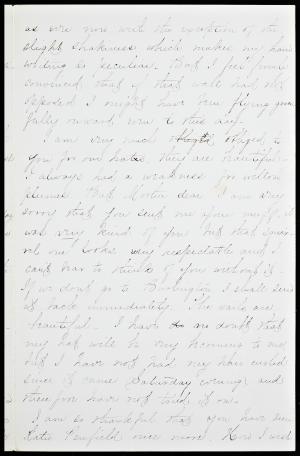 as ever now with the exception of the
slight shakiness which makes my hand
writing so peculiar. But I feel firmly
convinced that if that wall had not
opposed I might have been flying grace
fully onward even to this day.
I am very much obliged to
you for our hats, they are beautiful.
I always had a weakness for yellow
plumes. But Mother dear I am very
sorry that you sent me your muff, it
was very kind of you but that squir-
rel one looks very respectable and I
cant bear to think of you without it.
If we dont go to Burlington I shall send
it back immediately. The are
beautiful. I have no doubt that
my hat will be very becoming to me
but I have not had my hair curled
since it came Saturday evening and
therefore have not tried it on.
I am so thankful that you have seen
Katie Penfield once more. How I wish